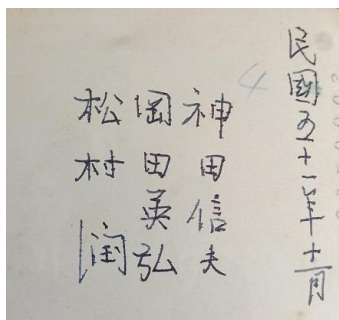 民國五十一年十一月
神田信夫
岡田英弘
松村潤